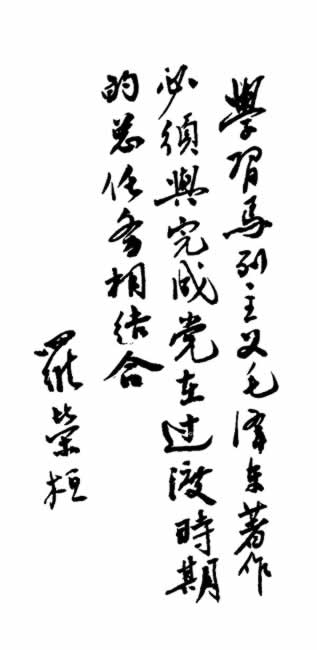 學習马列主义毛澤东著作
必須與完成党在过渡時期
的总任务相结合
羅榮桓